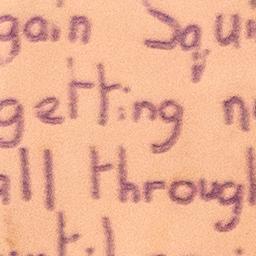 gain Squi
getting n
all through